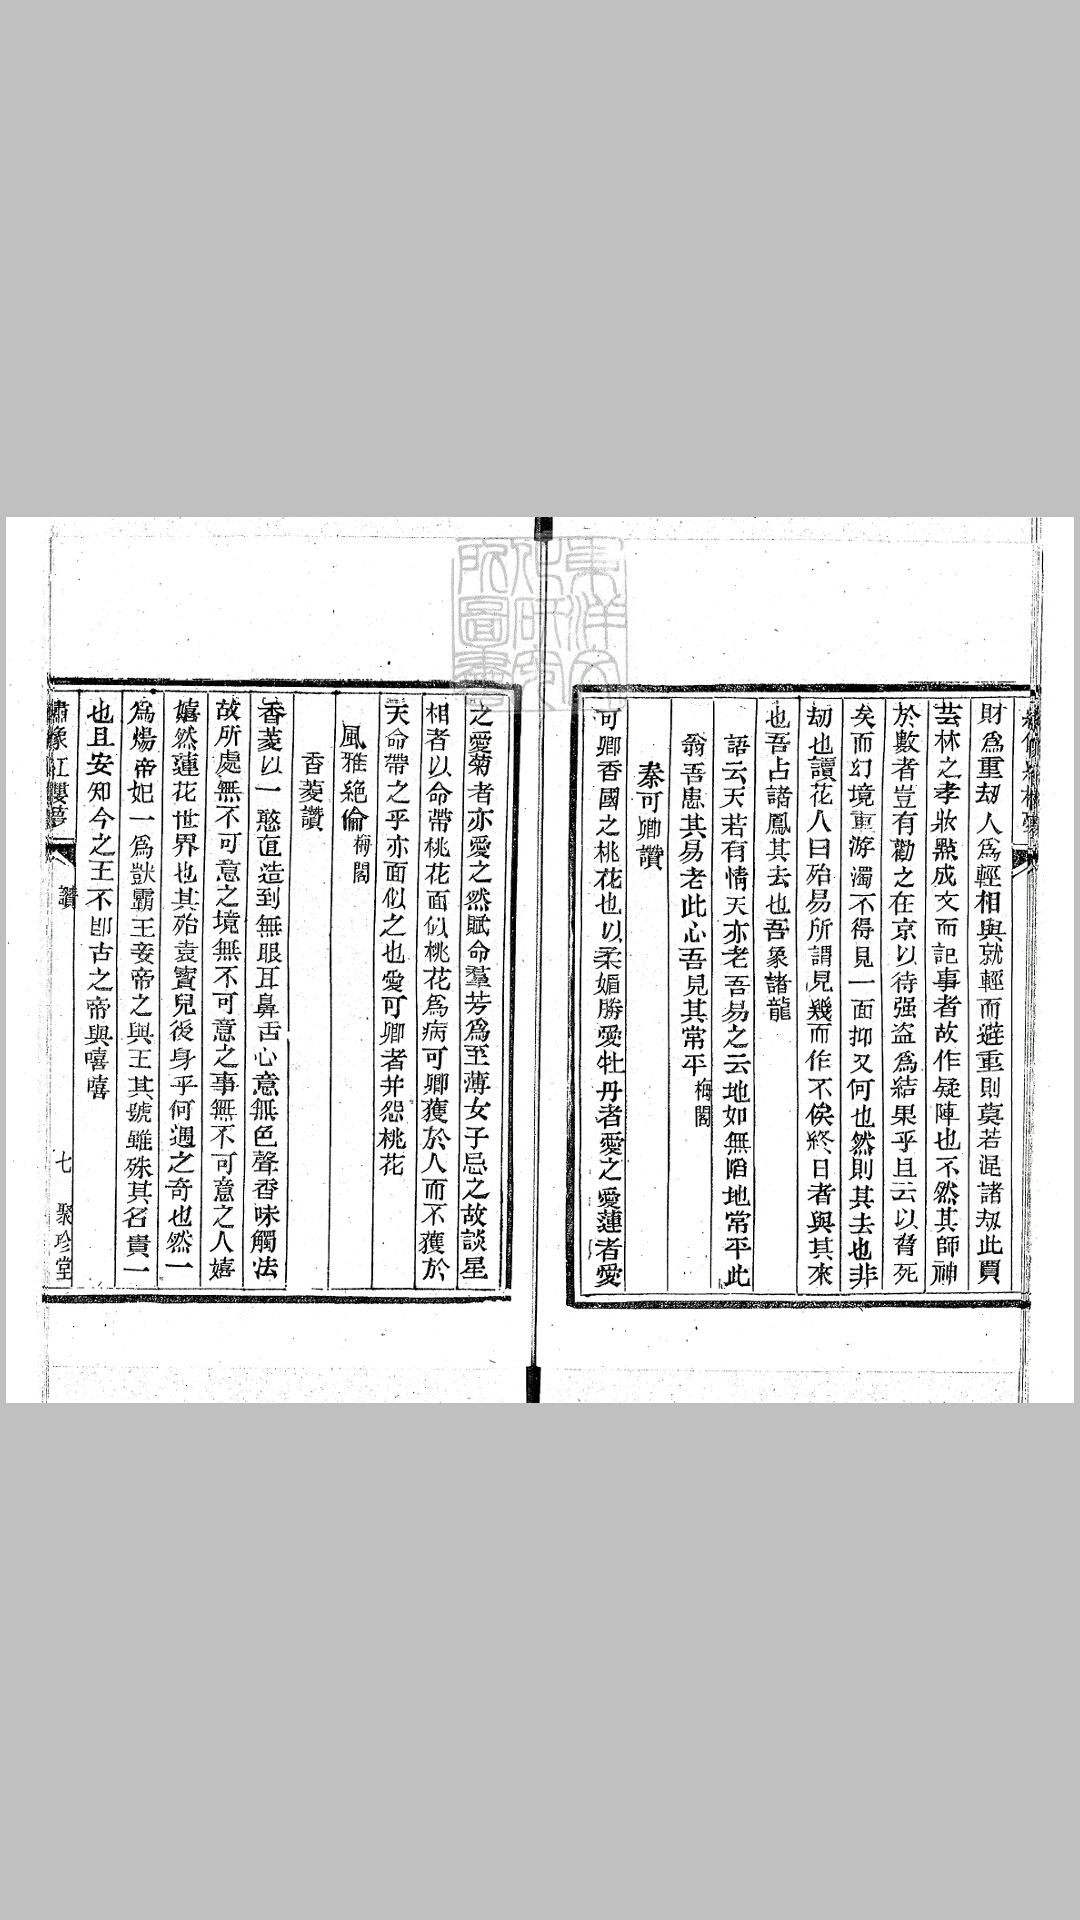 財爲重刼人爲輕相與就輕而避重則莫若混諸刼此賈
芸林之孝妝點成文而記事者故作疑陣也不然其師神
於數者豈有勸之在京以待强盜爲結果乎且云以脅死
矣而幻境重游濁不得見一面抑又何也然則其去也非
刼也讀花人曰殆易所謂見幾而作不俟終日者與其來
也吾占諸鳳其去也吾象諸龍
語云天若有情天亦老吾易之云地如無陷地常平此
翁吾患其易老此心吾見其常平梅閣
秦可卿讚
可卿香國之桃花也以柔媚勝愛牡丹者愛之愛蓮者愛
之愛菊者亦愛之然賦命羣芳爲至薄女子忌之故談星
相者以命帶桃花面似桃花爲病可卿獲於人而不獲於
天命帶之乎亦面似之也愛可卿者并怨桃花
風雅絕倫梅閣
香菱讚
香菱以一憨直造到無眼耳鼻舌心意無色聲香味觸法
故所處無不可意之境無不可意之事無不可意之人嬉
嬉然蓮花世界也其殆袁寶兒後身乎何遇之奇也然一
爲煬帝妃一爲獃霸王妾帝之與王其號雖殊其名貴一
也且安知今之王不卽古之帝與嘻嘻
繡像紅樓夢
讚
七
聚珍堂